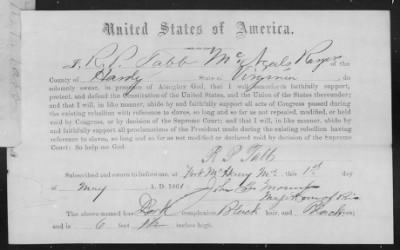 United States of America.
I, R. P. Tabb Mc Neils Rangers
County of Hardy State of Virginia, do
solemnly swear, in presence of Almighty God, that I will henceforth faithfully support,
protect, and defend the Constitution of the United States, and the Union of the States thereunder;
and that I will, in like manner, abide by and faithfully support all acts of Congress passed during
the existing rebellion with reference to slaves, so long and so far as not repealed, modified, or held
void by Congress, or by decision of the Supreme Court; and that I will, in like manner, abide by
and faithfully support all proclamations of the President made during the existing rebellion having
reference to slaves, so long and so far as not modified or declared void by decision of the Supreme
Court: So help me God.
R P Tabb
Subscribed and sworn to before me, at Fort McHenry Md, this 1st day
of May A. D. 186
The above named has Dark complexion, Black hair, and Black eyes;
and is 6 feet inches high.